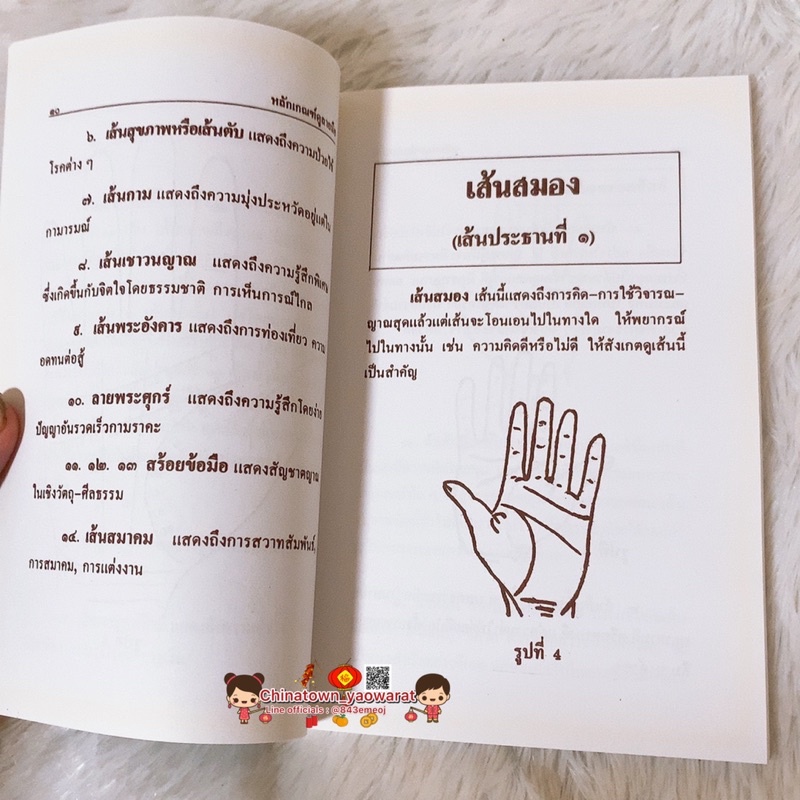 ๑๐ หลักเกณฑ์ดูลายมือ
๖. เส้นสุขภาพหรือเส้นตับ แสดงถึงความป่วยไข้
โรคต่าง ๆ
๗. เส้นกาม แสดงถึงความมุ่งประหวัดอยู่แต่ใน
กามารมณ์
๘. เส้นเชาวนญาณ แสดงถึงความรู้สึกพิเศษ
ซึ่งเกิดขึ้นกับจิตใจโดยธรรมชาติ การเห็นการณ์ไกล
๙. เส้นพระอังคาร แสดงถึงการท่องเที่ยว ความ
อดทนต่อสู้
๑๐. ลายพระศุกร์ แสดงถึงความรู้สึกโดยง่าย
ปัญญาอันรวดเร็วกามราคะ
๑๑. ๑๒. ๑๓ สร้อยข้อมือ แสดงสัญชาตญาณ
ในเชิงวัตถุ-ศีลธรรม
๑๔. เส้นสมาคม แสดงถึงการสวาทสัมพันธ์,
การสมาคม, การแต่งงาน
เส้นสมอง
(เส้นประธานที่ ๑)
เส้นสมอง เส้นนี้แสดงถึงการคิด-การใช้วิจารณ-
ญาณสุดแล้วแต่เส้นจะโอนเอนไปในทางใด ให้พยากรณ์
ไปในทางนั้น เช่น ความคิดดีหรือไม่ดี ให้สังเกตดูเส้นนี้
เป็นสำคัญ
รูปที่ 4
Chinatown_yaowarat
Line officials : @843emeoj